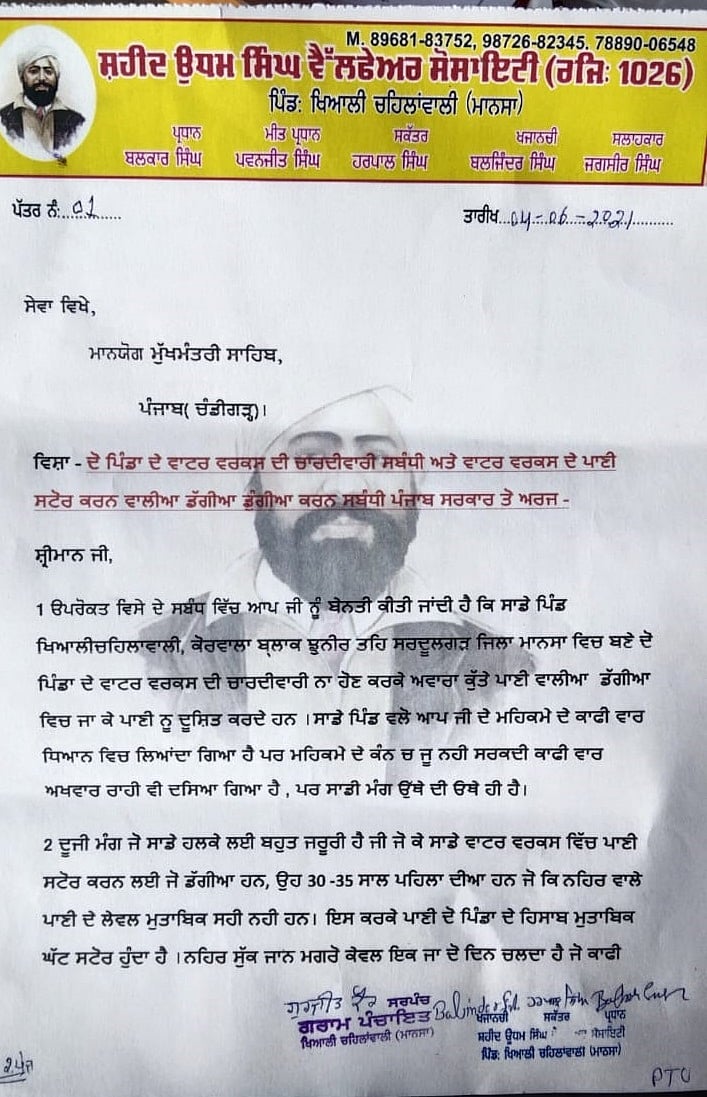 M. 89681-83752, 98726-82345. 78890-06548
ਸ਼ਹੀਦ ਊਧਮ ਸਿੰਘ ਵੈੱਲਫੇਅਰ ਸੋਸਾਇਟੀ (ਰਜਿ: 1026)
ਪਿੰਡ: ਖਿਆਲੀ ਚਹਿਲਾਂਵਾਲੀ (ਮਾਨਸਾ)
ਪ੍ਰਧਾਨ ਮੀਤ ਪ੍ਰਧਾਨ ਸਕੱਤਰ ਖਜਾਨਚੀ ਸਲਾਹਕਾਰ
ਬਲਕਾਰ ਸਿੰਘ ਪਵਨਜੀਤ ਸਿੰਘ ਹਰਪਾਲ ਸਿੰਘ ਬਲਜਿੰਦਰ ਸਿੰਘ ਜਗਸੀਰ ਸਿੰਘ
ਪੱਤਰ ਨੰ:...01...... ਤਾਰੀਖ...04-06-2021..........
ਸੇਵਾ ਵਿਖੇ,
ਮਾਨਯੋਗ ਮੁੱਖਮੰਤਰੀ ਸਾਹਿਬ,
ਪੰਜਾਬ( ਚੰਡੀਗੜ੍ਹ)।
ਵਿਸ਼ਾ - ਦੋ ਪਿੰਡਾ ਦੇ ਵਾਟਰ ਵਰਕਸ ਦੀ ਚਾਰਦੀਵਾਰੀ ਸਬੰਧੀ ਅਤੇ ਵਾਟਰ ਵਰਕਸ ਦੇ ਪਾਣੀ
ਸਟੋਰ ਕਰਨ ਵਾਲੀਆ ਡੱਗੀਆ ਡੁੰਗੀਆ ਕਰਨ ਸਬੰਧੀ ਪੰਜਾਬ ਸਰਕਾਰ ਤੋ ਅਰਜ -
ਸ਼੍ਰੀਮਾਨ ਜੀ,
1 ਉਪਰੋਕਤ ਵਿਸੇ ਦੇ ਸਬੰਧ ਵਿੱਚ ਆਪ ਜੀ ਨੂੰ ਬੇਨਤੀ ਕੀਤੀ ਜਾਂਦੀ ਹੈ ਕਿ ਸਾਡੇ ਪਿੰਡ
ਖਿਆਲੀਚਹਿਲਾਵਾਲੀ, ਕੋਰਵਾਲਾ ਬ੍ਲਾਕ ਝੁਨੀਰ ਤਹਿ ਸਰਦੂਲਗੜ ਜਿਲਾ ਮਾਨਸਾ ਵਿਚ ਬਣੇ ਦੋ
ਪਿੰਡਾ ਦੇ ਵਾਟਰ ਵਰਕਸ ਦੀ ਚਾਰਦੀਵਾਰੀ ਨਾ ਹੋਣ ਕਰਕੇ ਅਵਾਰਾ ਕੁੱਤੇ ਪਾਣੀ ਵਾਲੀਆ ਡੱਗੀਆ
ਵਿਚ ਜਾ ਕੇ ਪਾਣੀ ਨੂ ਦੂਸ਼ਿਤ ਕਰਦੇ ਹਨ । ਸਾਡੇ ਪਿੰਡ ਵਲੋ ਆਪ ਜੀ ਦੇ ਮਹਿਕਮੇ ਦੇ ਕਾਫੀ ਵਾਰ
ਧਿਆਨ ਵਿਚ ਲਿਆਂਦਾ ਗਿਆ ਹੈ ਪਰ ਮਹਿਕਮੇ ਦੇ ਕੰਨ ਚ ਜੂ ਨਹੀ ਸਰਕਦੀ ਕਾਫੀ ਵਾਰ
ਅਖਵਾਰ ਰਾਹੀ ਵੀ ਦਸਿਆ ਗਿਆ ਹੈ , ਪਰ ਸਾਡੀ ਮੰਗ ਉੱਥੇ ਦੀ ਓਥੇ ਹੀ ਹੈ।
2 ਦੂਜੀ ਮੰਗ ਜੋ ਸਾਡੇ ਹਲਕੇ ਲਈ ਬਹੁਤ ਜਰੂਰੀ ਹੈ ਜੀ ਜੋ ਕੇ ਸਾਡੇ ਵਾਟਰ ਵਰਕਸ ਵਿੱਚ ਪਾਣੀ
ਸਟੋਰ ਕਰਨ ਲਈ ਜੋ ਡੱਗੀਆ ਹਨ, ਉਹ 30 -35 ਸਾਲ ਪਹਿਲਾ ਦੀਆ ਹਨ ਜੋ ਕਿ ਨਹਿਰ ਵਾਲੇ
ਪਾਣੀ ਦੇ ਲੇਵਲ ਮੁਤਾਬਿਕ ਸਹੀ ਨਹੀ ਹਨ। ਇਸ ਕਰਕੇ ਪਾਣੀ ਦੋ ਪਿੰਡਾ ਦੇ ਹਿਸਾਬ ਮੁਤਾਬਿਕ
ਘੱਟ ਸਟੋਰ ਹੁੰਦਾ ਹੈ ।ਨਹਿਰ ਸੁੱਕ ਜਾਨ ਮਗਰੋ ਕੇਵਲ ਇਕ ਜਾ ਦੋ ਦਿਨ ਚਲਦਾ ਹੈ ਜੋ ਕਾਫੀ
ਗੁਰਜੀਤ ਕੌਰ ਸਰਪੰਚ
ਗਰਾਮ ਪੰਚਾਇਤ
ਖਿਆਲੀ ਚਹਿਲਾਂਵਾਲੀ (ਮਾਨਸਾ)
ਖਜਾਨਚੀ ਸਕੱਤਰ ਪ੍ਰਧਾਨ
ਸ਼ਹੀਦ ਊਧਮ ਸਿੰਘ ਸੋਸਾਇਟੀ
ਪਿੰਡ: ਖਿਆਲੀ ਚਹਿਲਾਂਵਾਲੀ (ਮਾਨਸਾ)
PTO